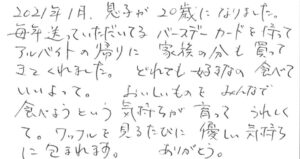 2021年1月、息子が20歳になりました。
毎年送っていただいてるバースデーカードを持って
アルバイトの帰りに家族の分も買って
きてくれました。どれでも好きなの食べて
いいよって。おいしいものをみんなで
食べようという気持ちが育ってうれしく
て。ワッフルを見るたびに優しい気持ち
に包まれます。ありがとう。